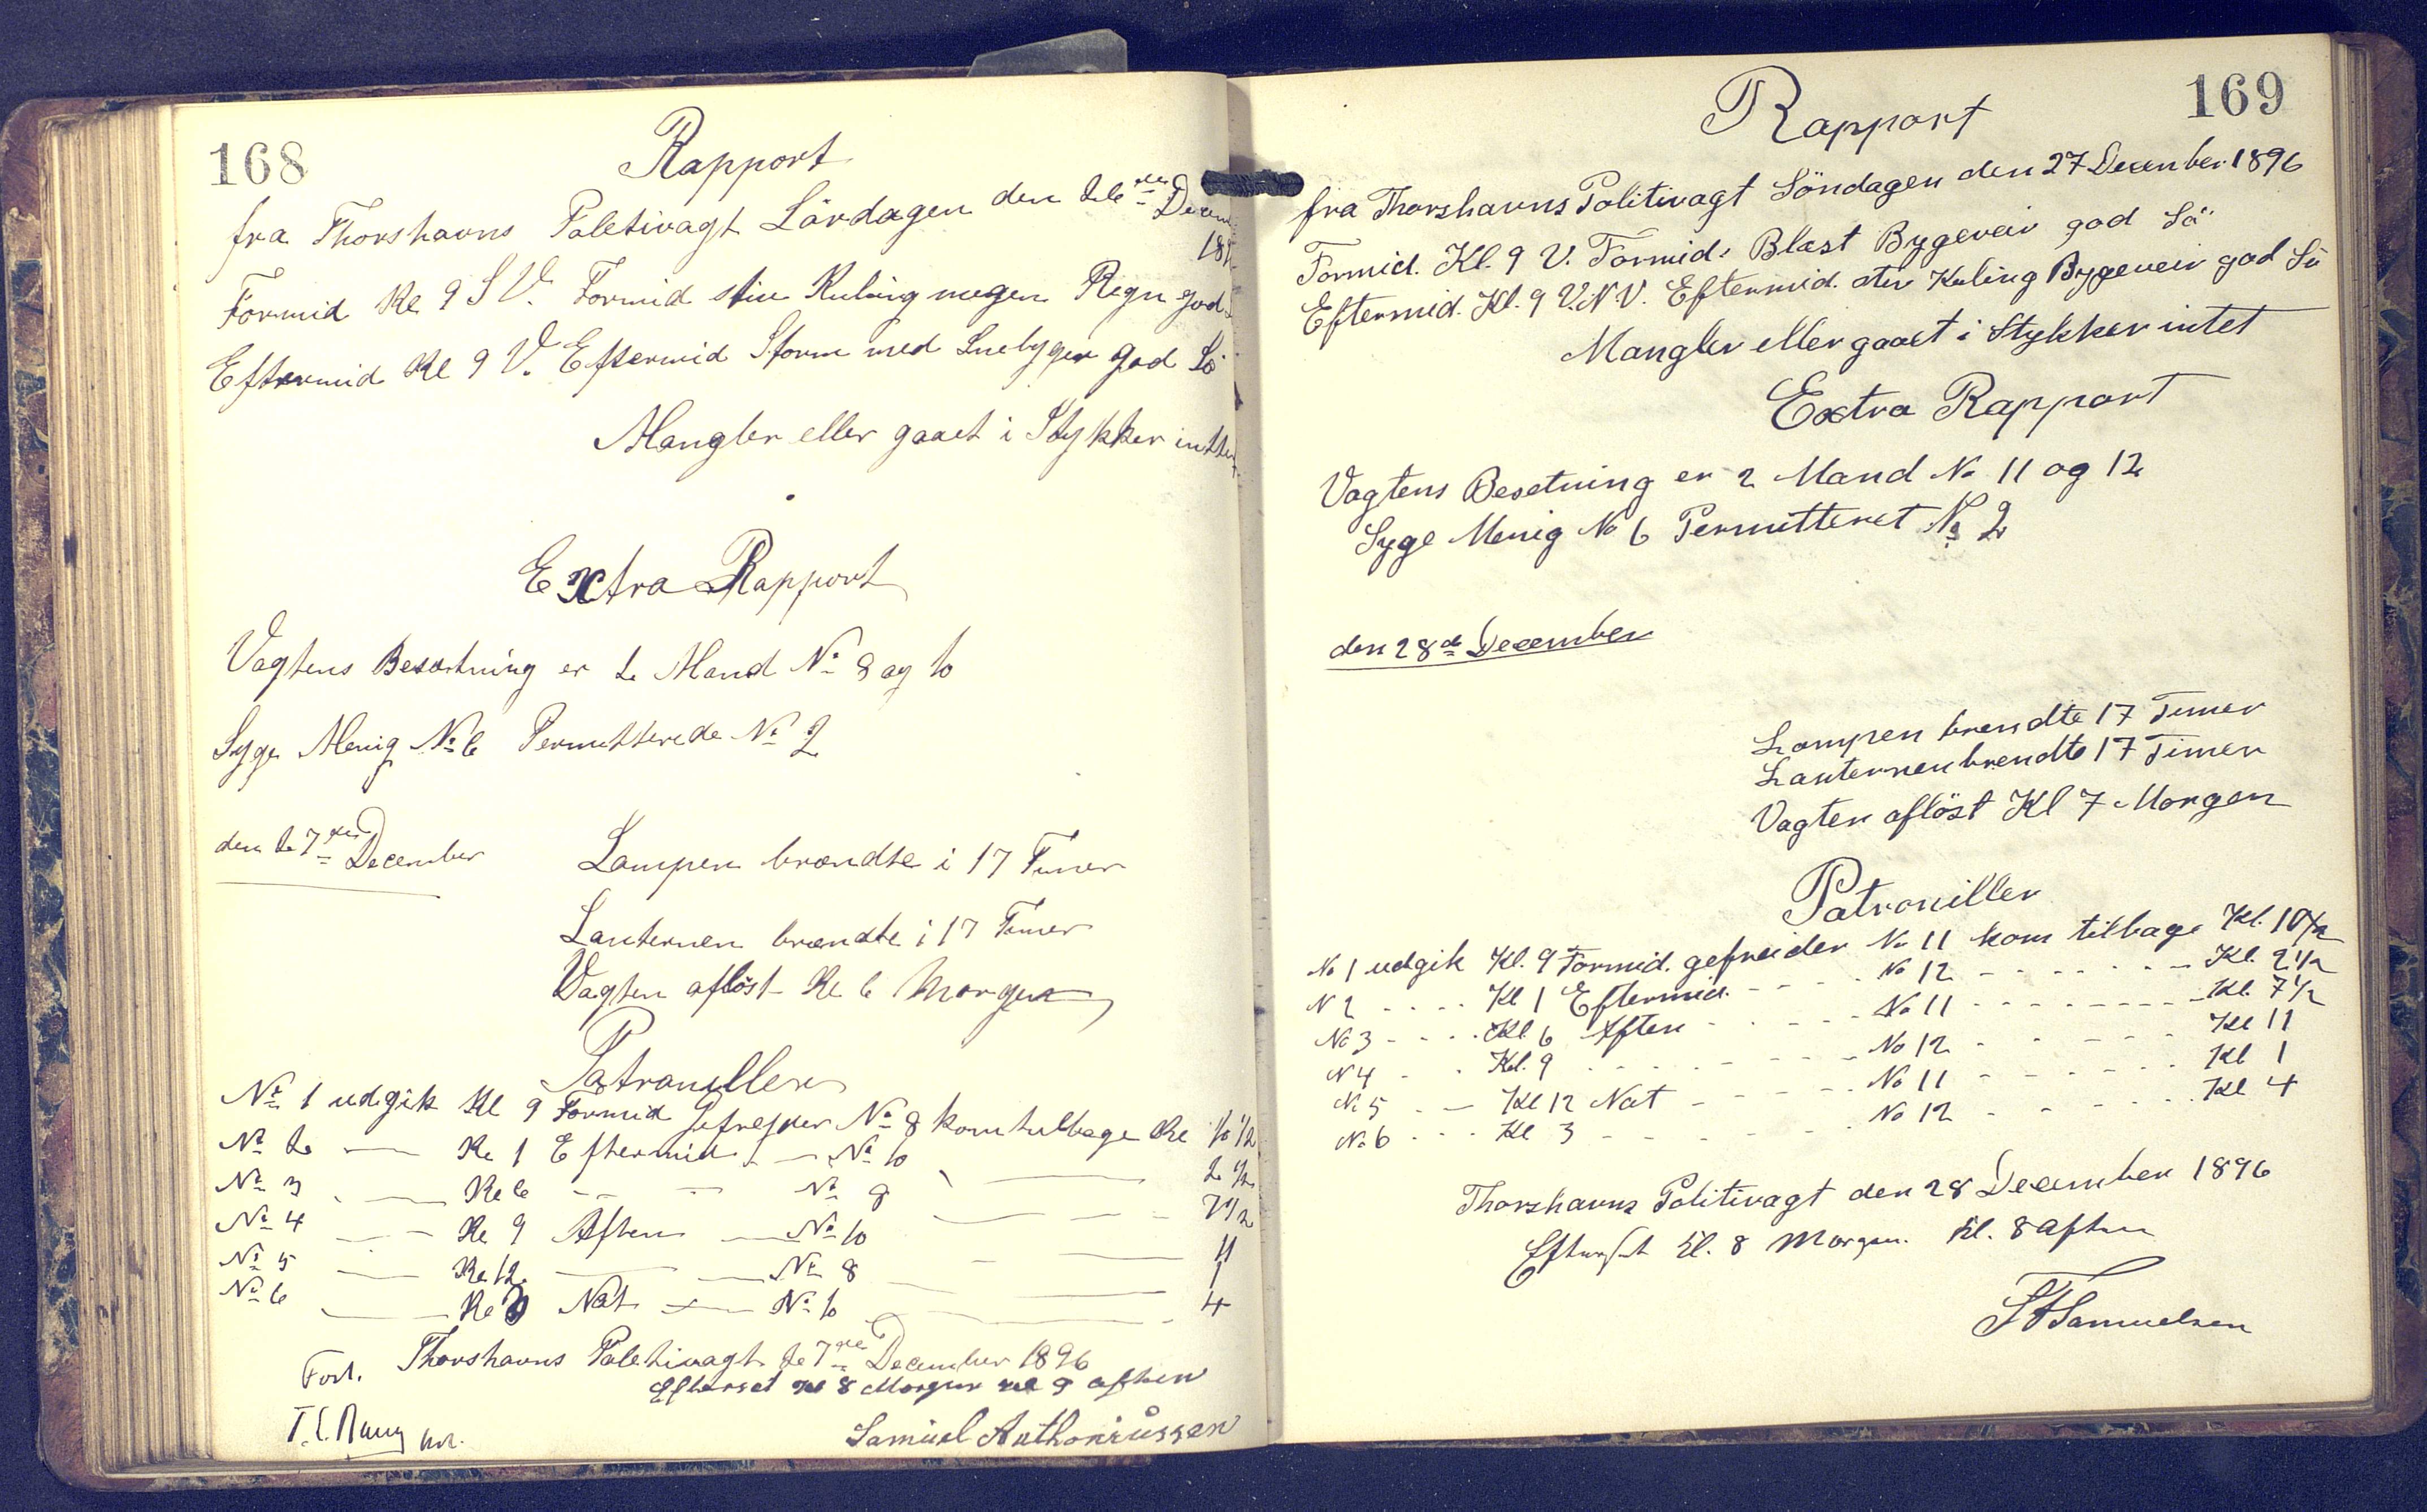 168
Rapport
fra Thorshavns Poletivagt Lördagen den 26de Decem
189
Formid Kl 9 S V. Formid stiv Kuling megen Regn god
Eftermid Kl 9 V. Eftermid Storm med Snebyger god Sö
Mangler eller gaaet i Stykker inttet
Extra Rapport
Vagtens Besætning er 2 Mand No 8 og 10
Syge Menig No 6 Permitterede No 2
den 27de December
Lampen brændte i 17 Timer
Lanternen brændte i 17 Timer
Vagten aflöst Kl 6 Morgen
Patrouiller
No 1 udgik Kl 9 Formid Gefrejder No 8 kom tilbage Kl 10 1/2
No 2 — Kl 1 Eftermid — No 10 — 2 1/2
No 3 — Kl 6 - - No 8 — 7 1/2
No 4 — Kl 9 Aften — No 10 — 11
No 5 — Kl 12 — No 8 — 1
No 6 — Kl 3 Nat — No 10 — 4
Thorshavns Poletivagt 27de December 1896
Efterset Kl 8 Morgen Kl 9 aften
Samuel Anthoniussen
169
Rapport
fra Thorshavns Politivagt Söndagen den 27 December 1896
Formid. Kl. 9 V. Formid: Blæst Bygeveir god Sö
Eftermid. Kl. 9 V.N.V. Eftermid. stiv Kuling Bygeveir god Sö
Mangler eller gaaet i Stykker intet
Extra Rapport
Vagtens Besetning er 2 Mand No 11 og 12
Syge Menig No 6 Permitteret No 2
den 28de December
Lampen brendte 17 Timer
Lanternen brendte 17 Timer
Vagten aflöst Kl 7 Morgen
Patrouiller
No 1 udgik Kl. 9 Formid. gefreider No 11 kom tilbage Kl. 10 1/2
N 2 - - - - Kl 1 Eftermid. - - - - No 12 - - - - - - Kl. 2 1/2
No 3 - - - - Kl. 6 Aften - - - - No 11 - - - - - - - Kl. 7 1/2
N 4 - - Kl. 9 - - - - - - No 12 - - - - - Kl 11
No 5 - - Kl 12 Nat - - - - No 11 - - - - - - Kl 1
No 6 - - - Kl 3 - - - - - No 12 - - - - - Kl 4
Thorshavns Politivagt den 28 December 1896
Efterset Kl. 8 Morgen. Kl. 8 Aften
Samuelsen